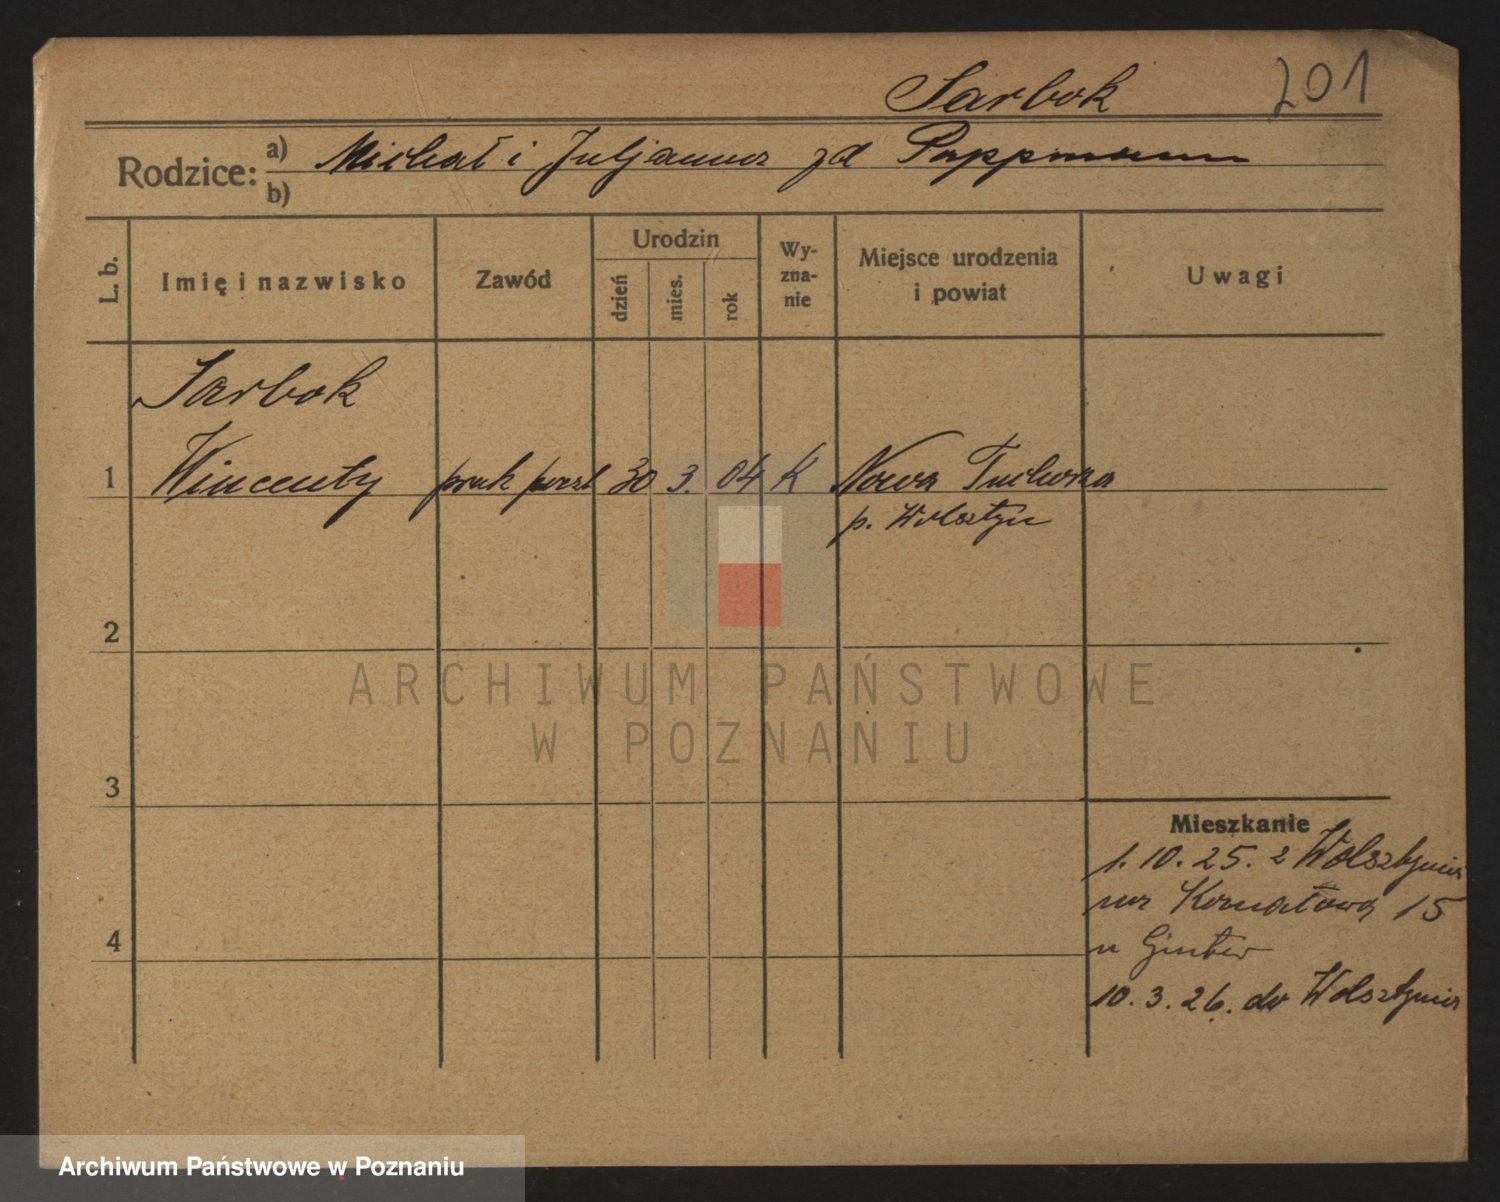 Sarbok 201
Rodzice: a) Michał i Juljanna zd Poppmann
b)
L. b. Imię i nazwisko Zawód Urodzin dzień mies. rok Wy-zna-nie Miejsce urodzenia i powiat Uwagi
Sarbok
1 Wincenty prak poczt 30 3. 04 K Nowa Tuchorza
p. Wolsztyn
2
3
Mieszkanie
1. 10. 25. z Wolsztyna
na 15
4 u Ginter
10. 3. 26. do Wolsztyna
ARCHIWUM PAŃSTWOWE
W POZNANIU
Archiwum Państwowe w Poznaniu